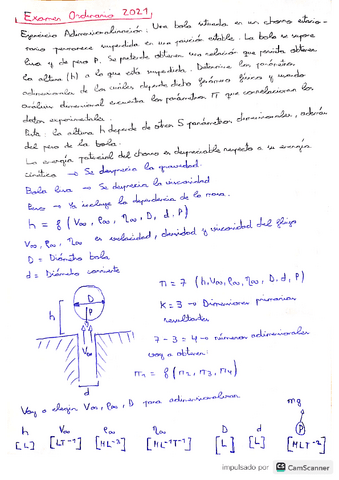 Examen Ordinario 2021
Ejercicio Adimensionalización: Una bola situada en un chorro estacio-
nario permanece suspendida en una posición estable. La bola se supone
lisa y de peso P. Se pretende obtener una relación que permita obtener
la altura (h) a la que está suspendida. Determine los parámetros
adimensionales de los cuales depende dicho fenómeno físico y usando
análisis dimensional encuentre los parámetros π que correlacionan los
datos experimentales.
Pista: la altura h depende de otros 5 parámetros dimensionales, además
del peso de la bola.
La energía potencial del chorro es despreciable respecto a su energía
cinética → Se desprecia la gravedad.
Bola lisa → Se desprecia la
Peso → Ya incluye la dependencia de la masa.
h = f (V∞, ρ∞, η∞, D, d, P)
V∞, ρ∞, η∞ es velocidad, densidad y viscosidad del flujo
D = Diámetro bola
d = Diámetro corriente
n = 7 (h, V∞, ρ∞, η∞, D, d, P)
k = 3 → Dimensiones primarias
resultantes
7 - 3 = 4 → números adimensionales
voy a obtener:
π1 = f (π2, π3, π4)
h
D
P
V∞
d
Voy a elegir V∞, ρ∞, D para adimensionalizar
mg
h V∞ ρ∞ η∞ D d P
[L] [LT⁻¹] [ML⁻³] [ML⁻¹T⁻¹] [L] [L] [MLT⁻²]
impulsado por CS CamScanner